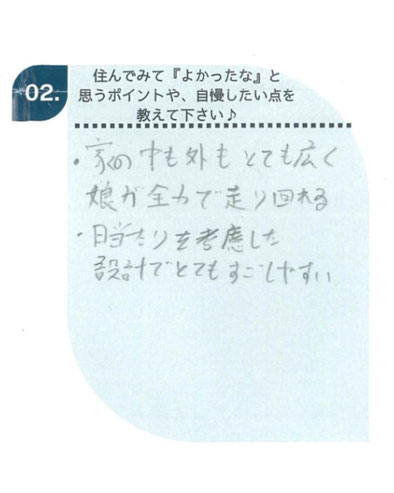 02.
住んでみて『よかったな』と
思うポイントや、自慢したい点を
教えて下さい♪
・家の中も外もとても広く
娘が全力で走り回れる
・日当たりを考慮した
設計でとてもすごしやすい